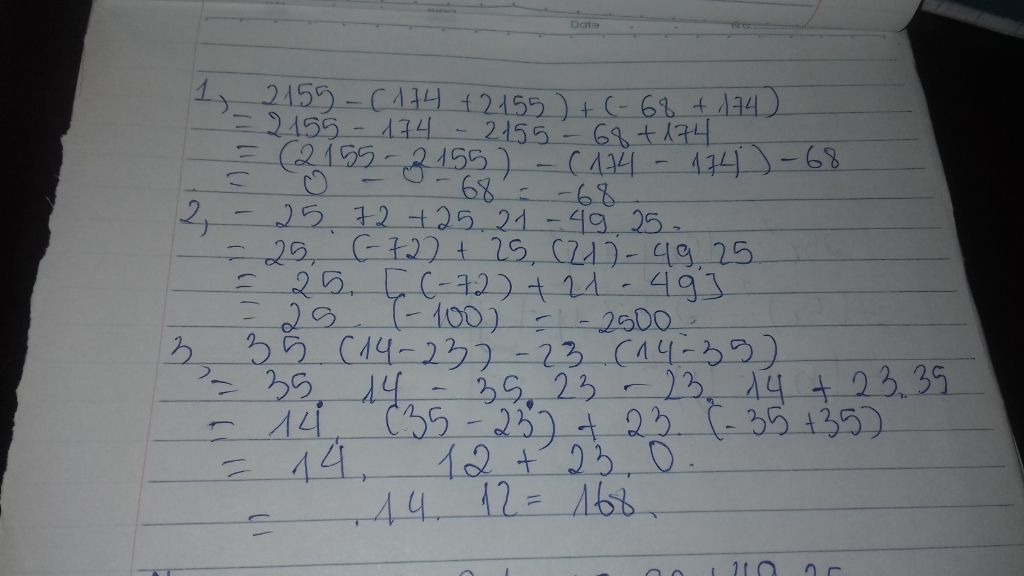 Date No
1, 2155 - (174 + 2155) + (-68 + 174)
= 2155 - 174 - 2155 - 68 + 174
= (2155 - 2155) - (174 - 174) - 68
= 0 - 0 - 68 = -68
2, - 25. 72 + 25. 21 - 49. 25.
= 25. (-72) + 25. (21) - 49. 25
= 25. [(-72) + 21 - 49]
= 25. (-100) = -2500.
3, 35 (14 - 23) - 23. (14 - 35)
= 35. 14 - 35. 23 - 23. 14 + 23. 35
= 14. (35 - 23) + 23. (-35 + 35)
= 14. 12 + 23. 0.
= .14. 12 = 168.